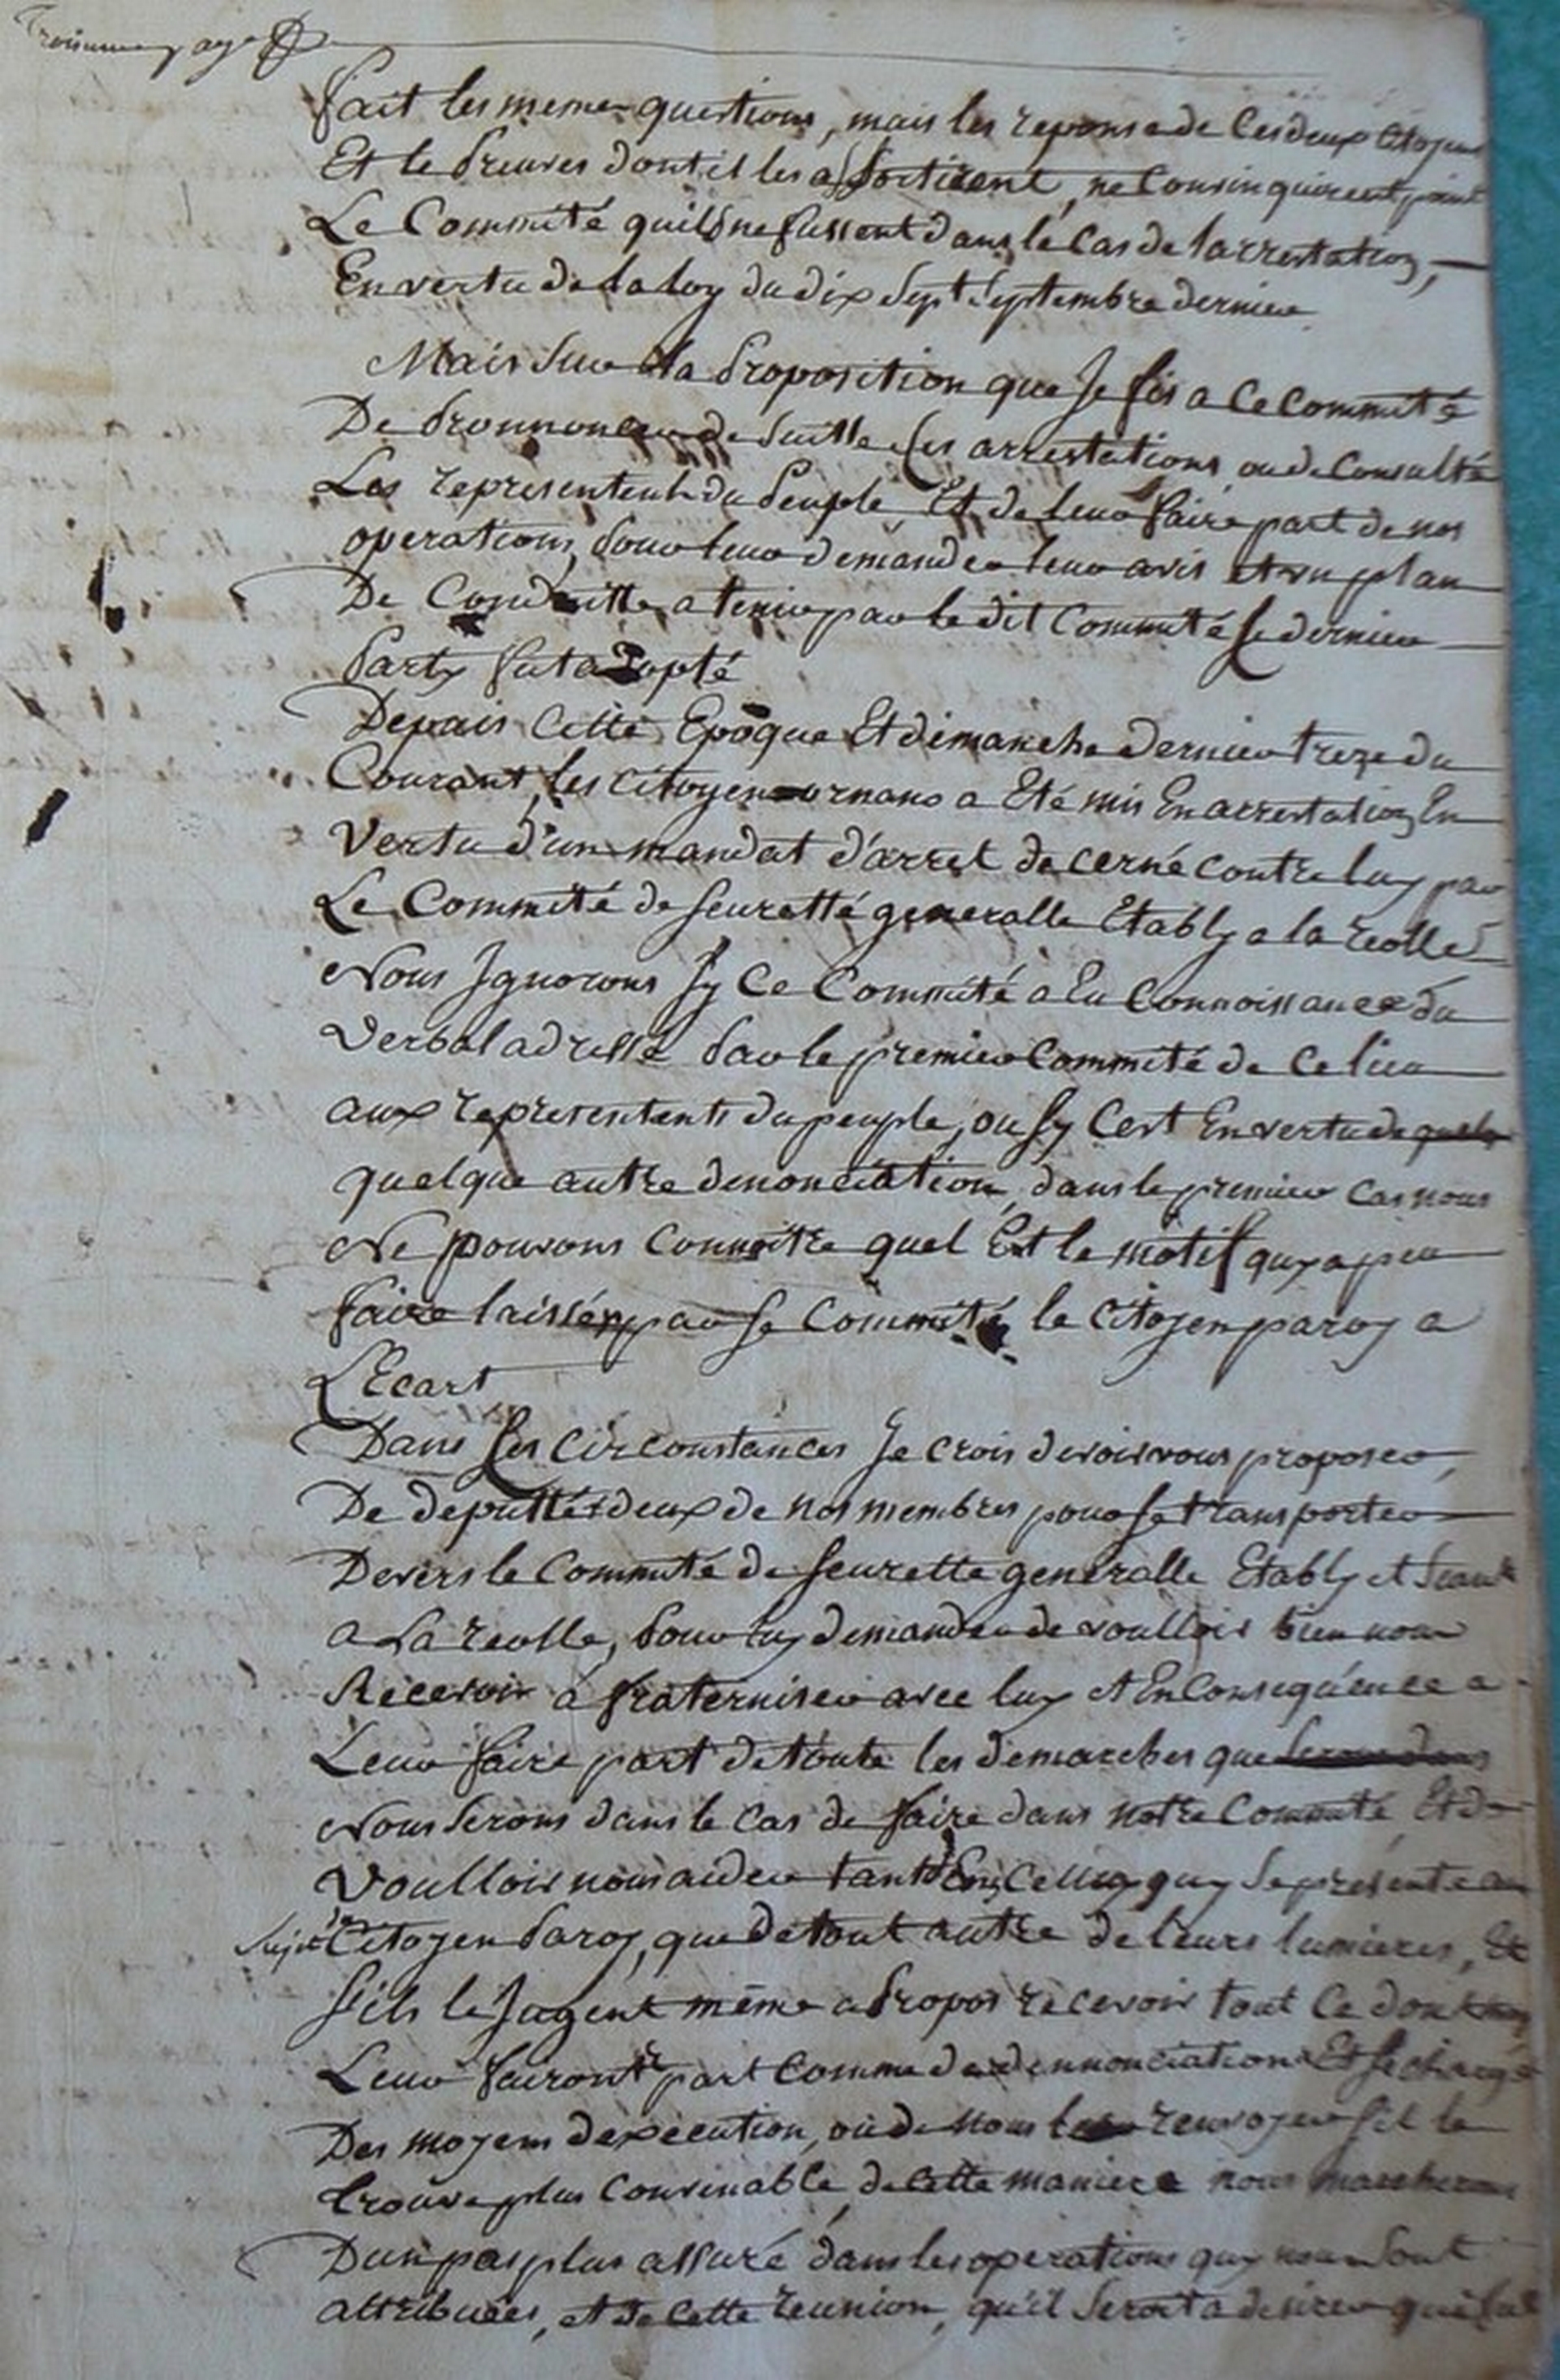 Troisieme page
fait les meme questions, mais les reponse de Ces deux Citoyens
Et le preuves dont il les assortirent, ne Convinquirent point
Le Committé quils ne fussent dans le Cas de larrestation,
En vertu de la loy du dix sept septembre dernier
Mais sur la proposition que Je fis a Ce Committé
De pronnoncer de suitte Ces arrestations ou de Consulté
Les representents du peuple Et de leur faire part de nos
operations, pour leur demander leur avis et un plan
De Conduitte a tenir par le dit Committé Ce dernier
Party fut adopté
Depuis Cette Epoque Et dimanche dernier treze du
Courant, les Citoyen ornano a Eté mis En arrestation En
Vertu d'un mandat d'arret decerné contre luy par
Le Committé de seuretté generalle Etably a la reolle
Nous Ignorons sy Ce Committé a Eu Connoissance du
Verbal adressé par le premier Committé de Ce lieu
aux representents du peuple, ou sy Cest En vertu de
quelque autre denonciation, dans le premier Cas nous
Ne pouvons Connoître quel Est le motif quy a peu
faire laisser par se Committé le Citoyen paroy a
LEcart
Dans Ces Circonstances Je crois devoir vous proposer,
De deputter deux de nos membres pour se transporter
Devers le Committé de seurette generalle Etably et seant
a La reolle, pour luy demander de voulloir bien nous
Recevoir a fraterniser avec luy et En Consequence a
Leur faire part de toute les demarches que
Nous serons dans le Cas de faire dans notre Committé Et de
Voulloir nous aider tant En Celluy quy se presente au
sujet du Citoyen paroy, que de tout autre de leurs lumieres, Et
sils le Jugent même a propos recevoir tout Ce dont
Leur fairont part Comme de dennonciations Et se chargé
Des moyens dexecution, ou de nous les renvoyer sil le
trouve plus Convenable, de Cette maniere nous marcherons
Dun pas plus assuré dans les operations quy nous sont
attribuées, et de Cette reunion, qu'il seroit a desirer que fut